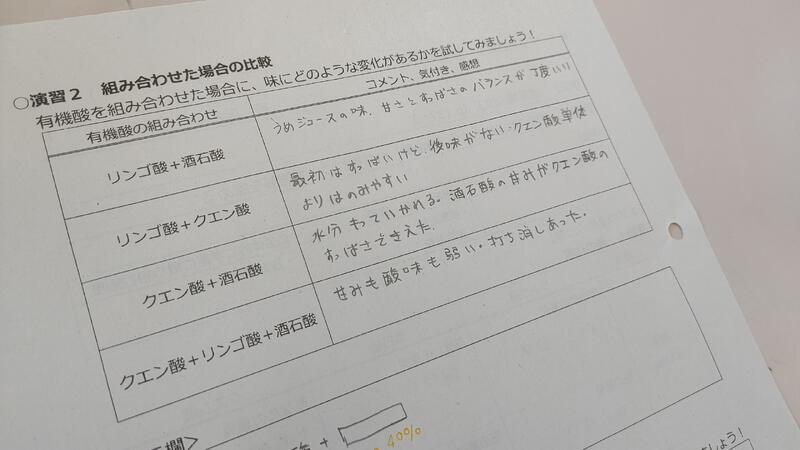 ○演習2 組み合わせた場合の比較
有機酸を組み合わせた場合に、味にどのような変化があるかを試してみましょう！
有機酸の組み合わせ
コメント、気付き、感想
リンゴ酸＋酒石酸
うめジュースの味、甘さとすっぱさのバランスが丁度いい
リンゴ酸＋クエン酸
最初はすっぱいけど、後味がない・クエン酸単体
よりはのみやすい
クエン酸＋酒石酸
水分もっていかれる。酒石酸の甘みがクエン酸の
すっぱさできえた.
クエン酸＋リンゴ酸＋酒石酸
甘みも酸味も弱い・打ち消しあった.
欄>
＋
40%
しょう！